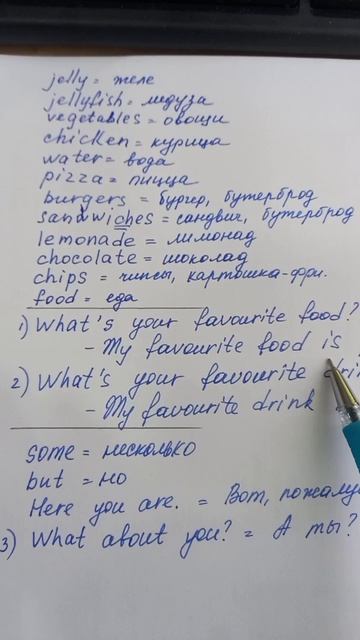 jelly = желе
jellyfish = медуза
vegetables = овощи
chicken = курица
water = вода
pizza = пицца
burgers = бургер, бутерброд
sandwiches = сандвич, бутерброд
lemonade = лимонад
chocolate = шоколад
chips = чипсы, картошка-фри.
food = еда
1) What's your favourite food?
- My favourite food is
2) What's your favourite
- My favourite drink
some = несколько
but = но
Here you are. = Вот,
3) What about you? = А ты?